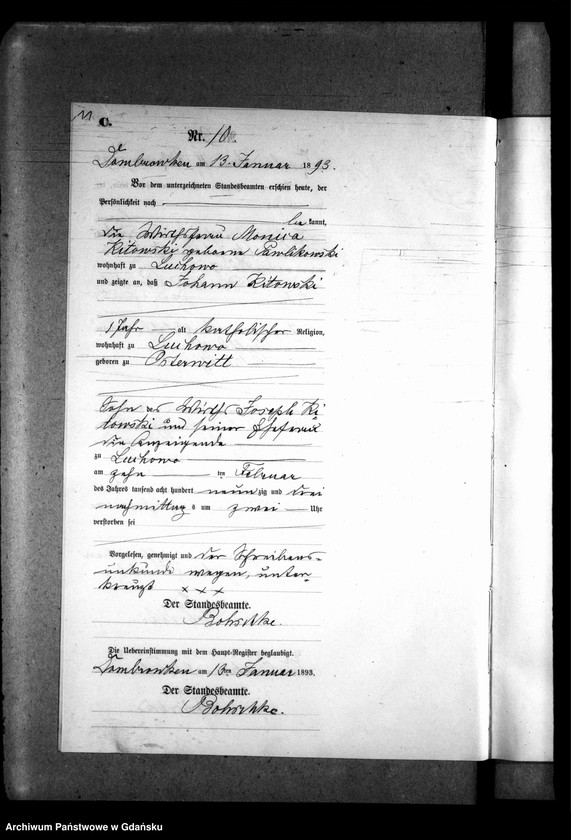 11
C.
Nr. 10
Dombrowken am 13. Januar 1893.
Vor dem unterzeichneten Standesbeamten erschien heute, der
Persönlichkeit nach
be kannt,
die Wirthsfrau Monica
Kitowski geborne Pawlikowski
wohnhaft zu Luchowo
und zeigte an, daß Johann Kitowski
1 Jahr alt katholischer Religion,
wohnhaft zu Luchowo
geboren zu Osterwitt
Sohn des Wirths Joseph Ki
towski und seiner Ehefrau
die Anzeigende
zu Luchowo
am zehn ten Februar
des Jahres tausend acht hundert neun zig und drei
nachmittag s um zwei Uhr
verstorben sei
Vorgelesen, genehmigt und der Schreibens-
unkunde wegen, unter-
kreuzt x x x
Der Standesbeamte.
Bohschke.
Die Uebereinstimmung mit dem Haupt-Register beglaubigt.
Dombrowken am 13ten Januar 1893.
Der Standesbeamte.
Bohschke.
Archiwum Państwowe w Gdańsku